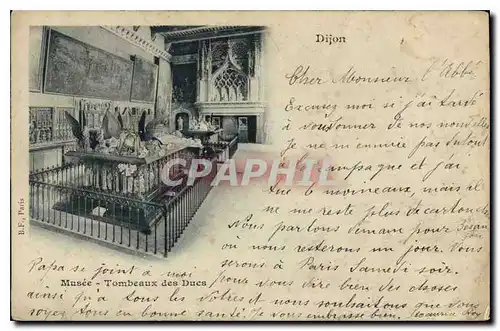 Dijon
Cher Monsieur l'Abbé
Excusez moi si j'ai tardé
à vous donner de nos nouvelles
je ne m'ennuie pas du tout
à la campagne et j'ai
que 6 moineaux, mais il
ne me reste plus de cartouche
Nous partons demain pour
ou nous resterons un jour. Nous
serons à Paris Samedi soir.
Papa se joint a moi pour vous dire bien des choses
ainsi qu'a tous les nôtres et nous souhaitons que vous
soyez tous en bonne santé. Je vous embrasse bien.
Musée - Tombeaux des Ducs
B. F., Paris
CPARAMA